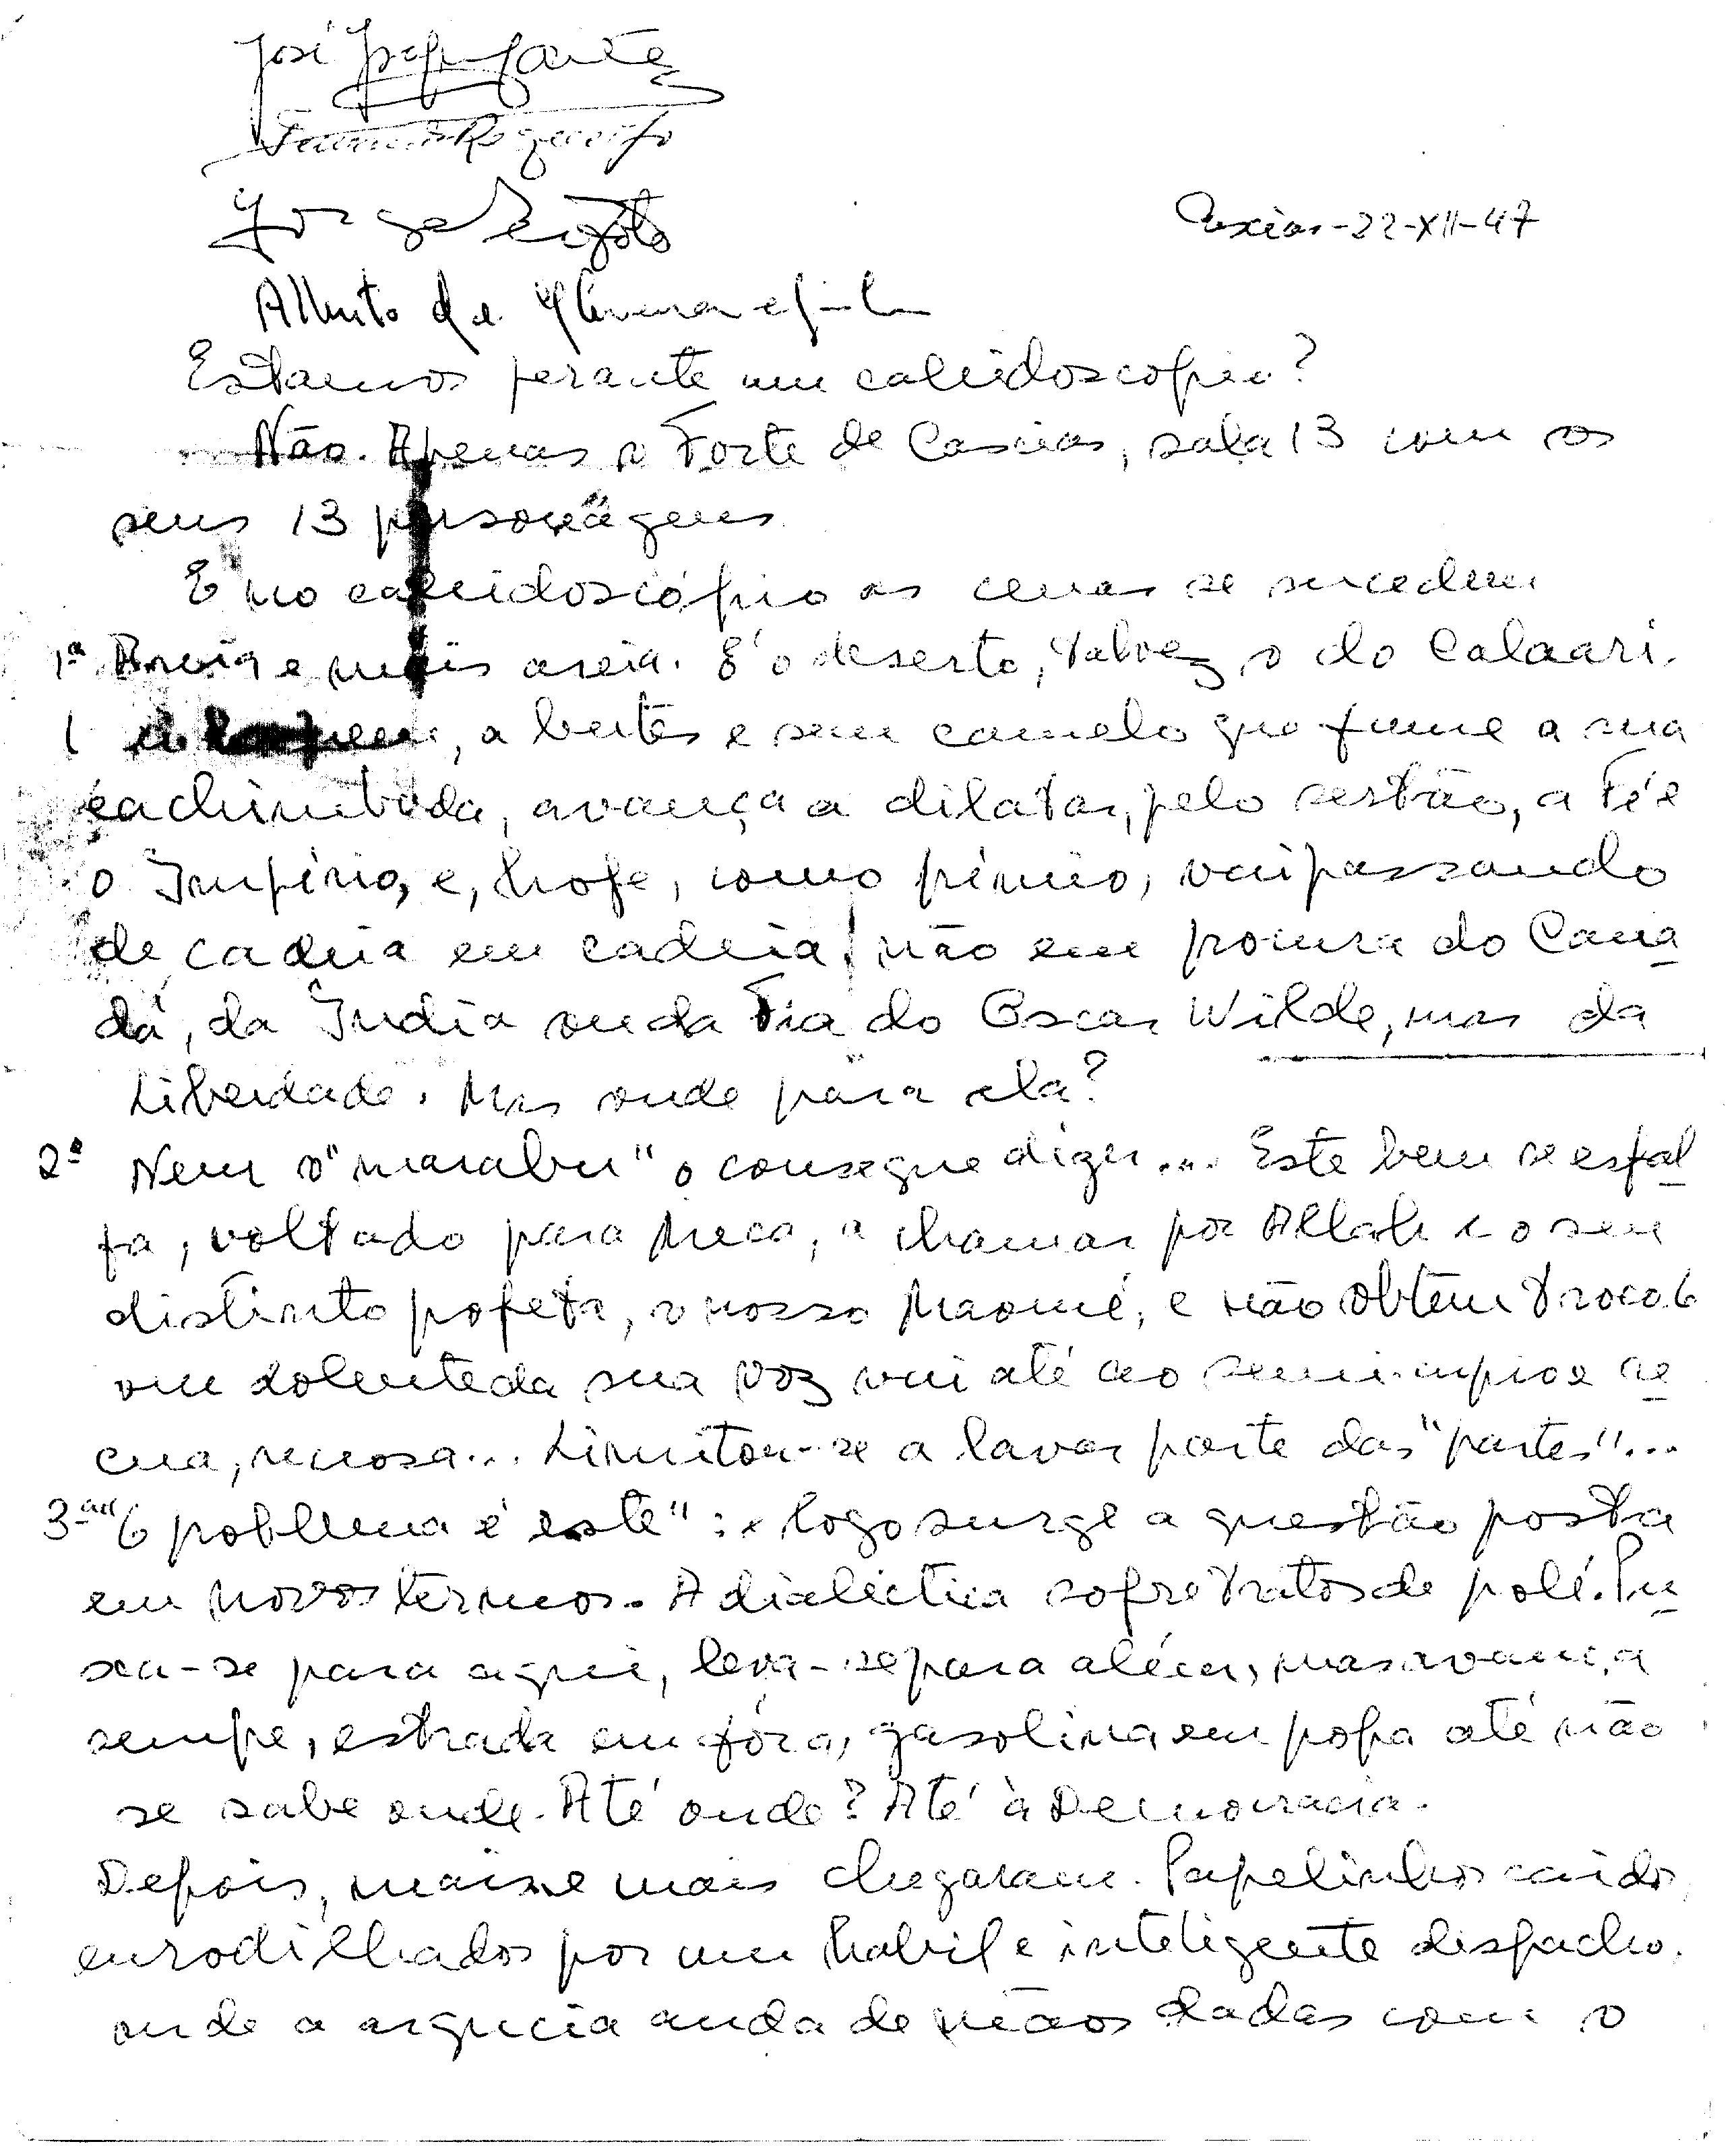 José
Jorge Peixoto
Alberto de Oliveira e
Caxias-22-XII-47
Estamos perante um caleidoscopio?
Não. Apenas o Forte de Caxias, sala 13 com os
seus 13 personágens
E no caleidoscópio as cenas se sucedem
1ª Areia e mais areia. E' o deserto, talvez o do Calaari.
1 homem, a butes e sem camelo que fume a sua
cachimbada, avança a dilatar, pelo sertão, a Fé e
o Império, e, hoje, como prémio, vai passando
de cadeia em cadeia, não em procura do Cana
dá, da India ou da Tia do Oscar Wilde, mas da
Liberdade. Mas onde pára ela?
2ª Nem o "marabu" o consegue dizer... Este bem se esfal
fa, voltado para Meca, a chamar por Allah e o seu
distinto pofeta, o nosso Maomé, e não obtem troco. O
som dolente da sua voz vai até ao semi-impio e re
cua, receosa... Limitou-se a lavar parte das "partes"...
3ª "O poblema é este": e logo surge a questão posta
em novos termos. A dialéctica sofre tratos de polé. Pu
xa-se para aqui, leva-se para além, mas avança
sempe, estrada em fóra, gasolina em popa até não
se sabe onde. Até onde? Até à Democracia.
Depois, mais e mais chegaram. Papelinhos caidos,
enrodilhados por um habil e inteligente despacho.
onde a argucia anda de mãos dadas com o